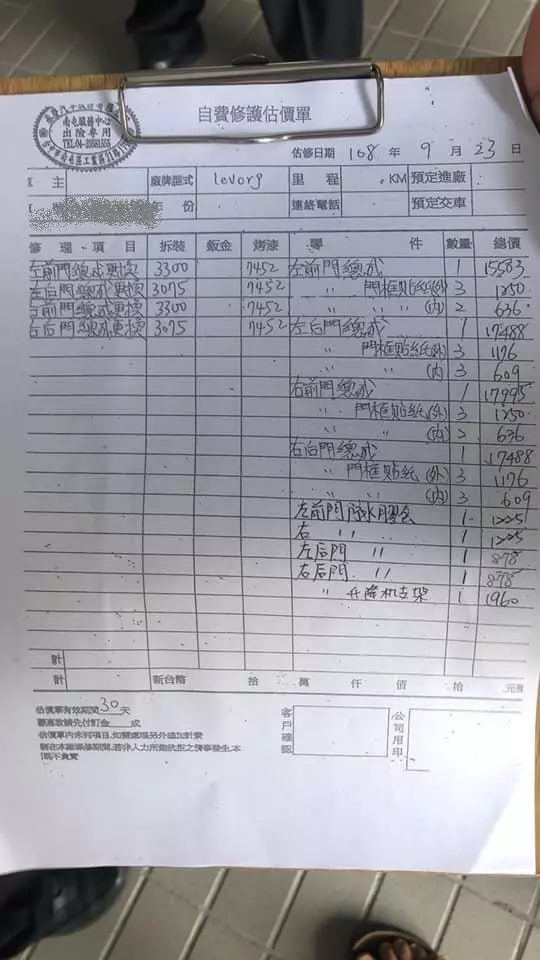 自費修護估價單
南屯服務中心
出險專用
TEL:04-23581555
估修日期 108 年 9 月 23 日
主 廠牌型式 levorg 里程 KM 預定進廠
年份 連絡電話 預定交車
修理項目 拆裝 鈑金 烤漆 零件 數量 總價
左前門總成更換 3300 7452 左前門總成 1 15583
左后門總成更換 3075 7452 〃 門框貼紙(外) 3 1250
右前門總成更換 3300 7452 〃 〃 〃 (內) 2 636
右后門總成更換 3075 7452 左后門總成 1 17488
〃 門框貼紙(外) 3 1176
〃 〃 (內) 3 609
右前門總成 1 17995
〃 門框貼紙(外) 3 1250
〃 〃 (內) 2 636
右后門總成 1 17488
〃 門框貼紙(外) 3 1176
〃 〃 (內) 3 609
左前門防水膠 1 1225
右 〃 〃 1 1225
左后門 〃 1 878
右后門 〃 1 878
〃 升降机支架 1 1960
計
計 新台幣 拾 萬 仟 佰 拾 元整
估價單有效期間 30 天
願惠敬請先付訂金 成
估價單內未列項目，如需處理另外追加計費
客戶確認
公司用印